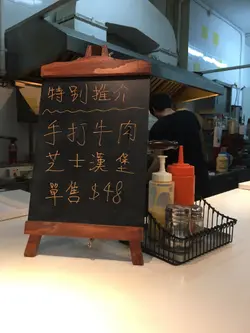 特别推介
手打牛肉
芝士漢堡
單售 $48